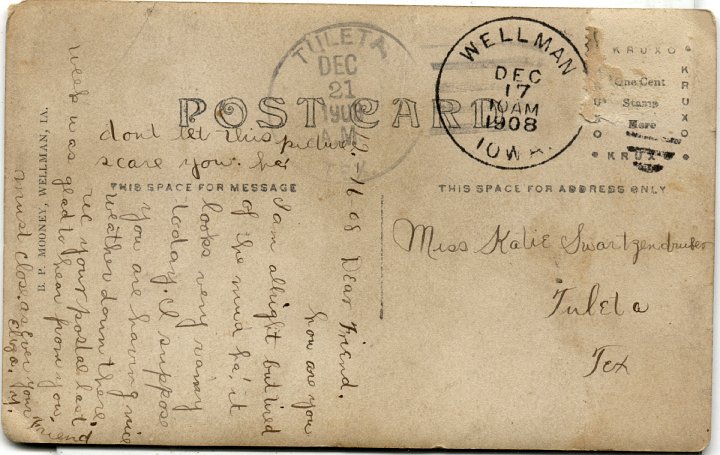 TULETA
DEC
21
190
A.M.
TEX
WELLMAN
DEC
17
10AM
1908
IOWA.
KRUXO
KRUXO
One Cent
Stamp
Here
KRUXO
POST CARD
THIS SPACE FOR MESSAGE
THIS SPACE FOR ADDRESS ONLY
B. F. MOONEY, WELLMAN, IA.
dont let this picture
scare you. ha
12-16 08 Dear Friend.
how are you
I am allright but tired
of the mud ha. it
looks very rainy
today. I suppose
you are having nice
weather down there.
rec your postal last
week was glad to hear from you,
must close. as Ever your friend
Eliza. Y.
Miss Katie Swartzendruber
Tuleta
Tex